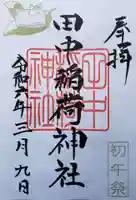 奉拝
田中稲荷神社
田中
神社
初午祭
令和六年三月九日